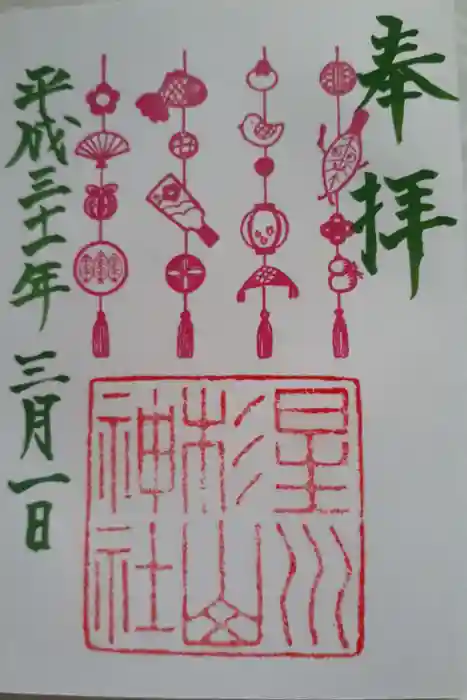 奉拝
星川
杉山
神社
平成三十一年 三月一日